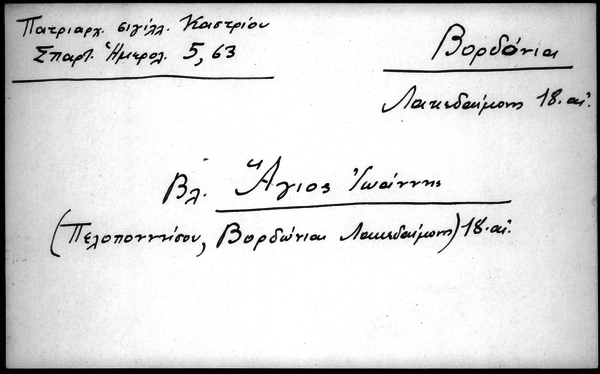 Πατριαρχ. σιγίλλ. Καστρίου
Σπαρτ. Ἡμερολ. 5, 63
Βορδόνια
Λακεδαίμονος 18. αἰ.
Βλ. Ἅγιος Ἰωάννης
(Πελοποννήσου, Βορδώνια Λακεδαίμονος) 18. αἰ.